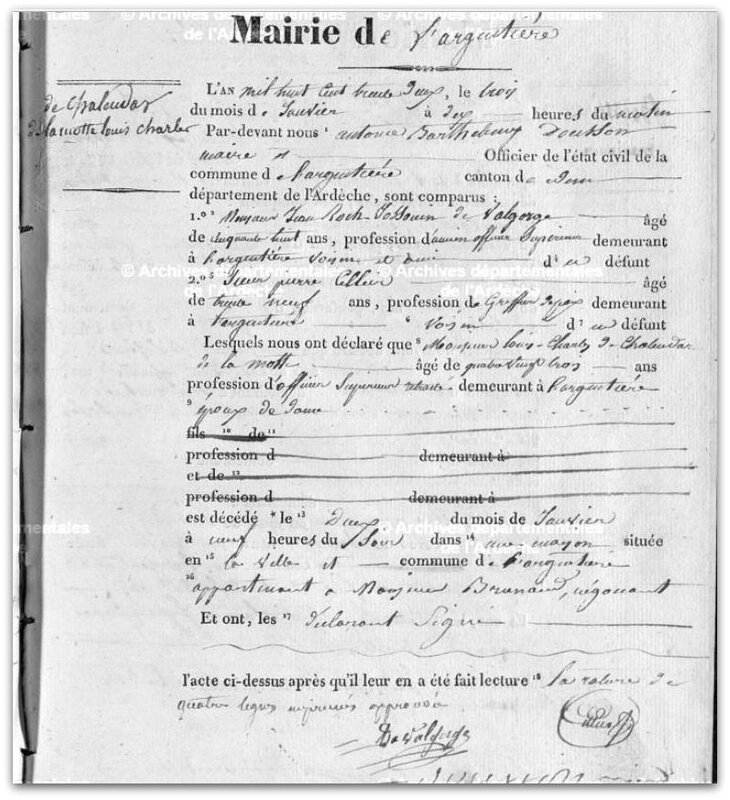 Mairie de Largentière
de Chalendar
delamotte louis charles
L'AN mil huit cent trente deux, le trois
du mois de Janvier à dix heures du matin
Par-devant nous ¹ antoine Barthelemy
maire Officier de l'état civil de la
commune de Largentière canton de
département de l'Ardèche, sont comparus :
1.º ² Monsieur Jean Roch de Valgorge âgé
de cinquante huit ans, profession d'ancien officier Supérieur demeurant
à Largentière voisin d⁴ u défunt
2.º ⁵ Sieur pierre âgé
de trente neuf ans, profession de Greffier demeurant
à Largentière ⁶ voisin d⁷ u défunt
Lesquels nous ont déclaré que ⁸ Monsieur louis Charles de Chalendar
de la motte âgé de quatre vingt trois ans
profession d'officier Supérieur retraité demeurant à Largentière
⁹ époux de dame
fils ¹⁰ de ¹¹
profession d demeurant à
et de ¹²
profession d demeurant à
est décédé * le ¹³ Deux du mois de Janvier
à neuf heures du Soir dans ¹⁴ une maison située
en ¹⁵ la ville et commune de Largentière
¹⁶ appartenant a Monsieur Brunaud, négociant
Et ont, les ¹⁷ déclarant Signé
l'acte ci-dessus après qu'il leur en a été fait lecture ¹⁸ la rature de
quatre lignes imprimés approuvée
De Valgorge
© Archives départementales
de l'Ardèche